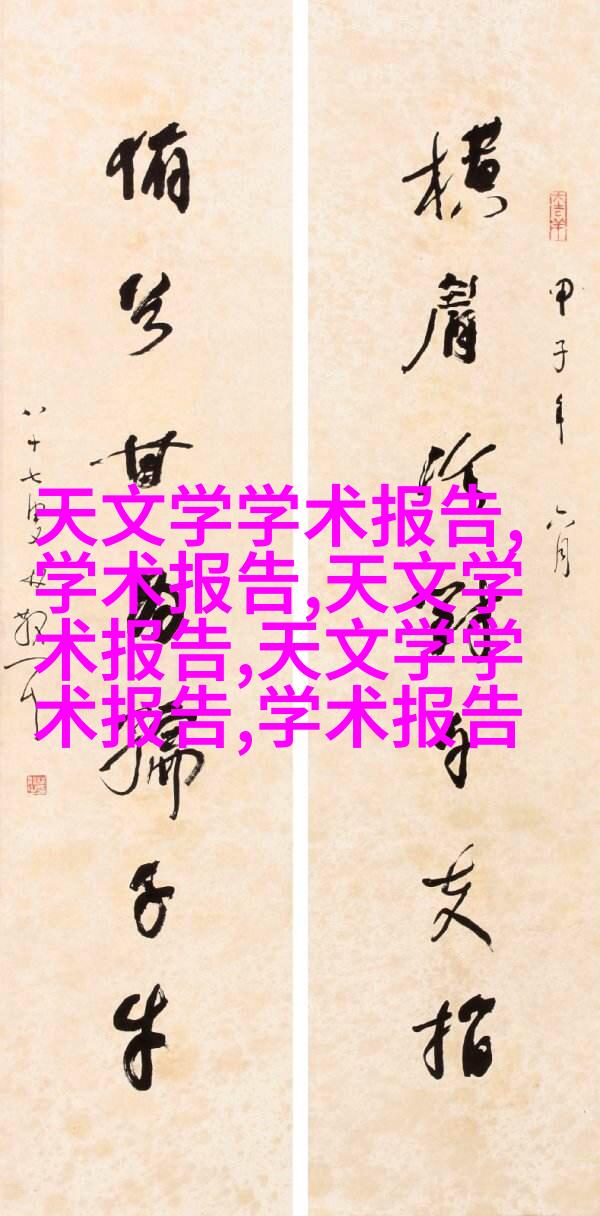 甲子年六月
橫眉冷對千夫指
俯首甘為孺子牛
八十七叟林散
天文学学术报告,
学术报告,天文学
术报告,天文学学
术报告,学术报告